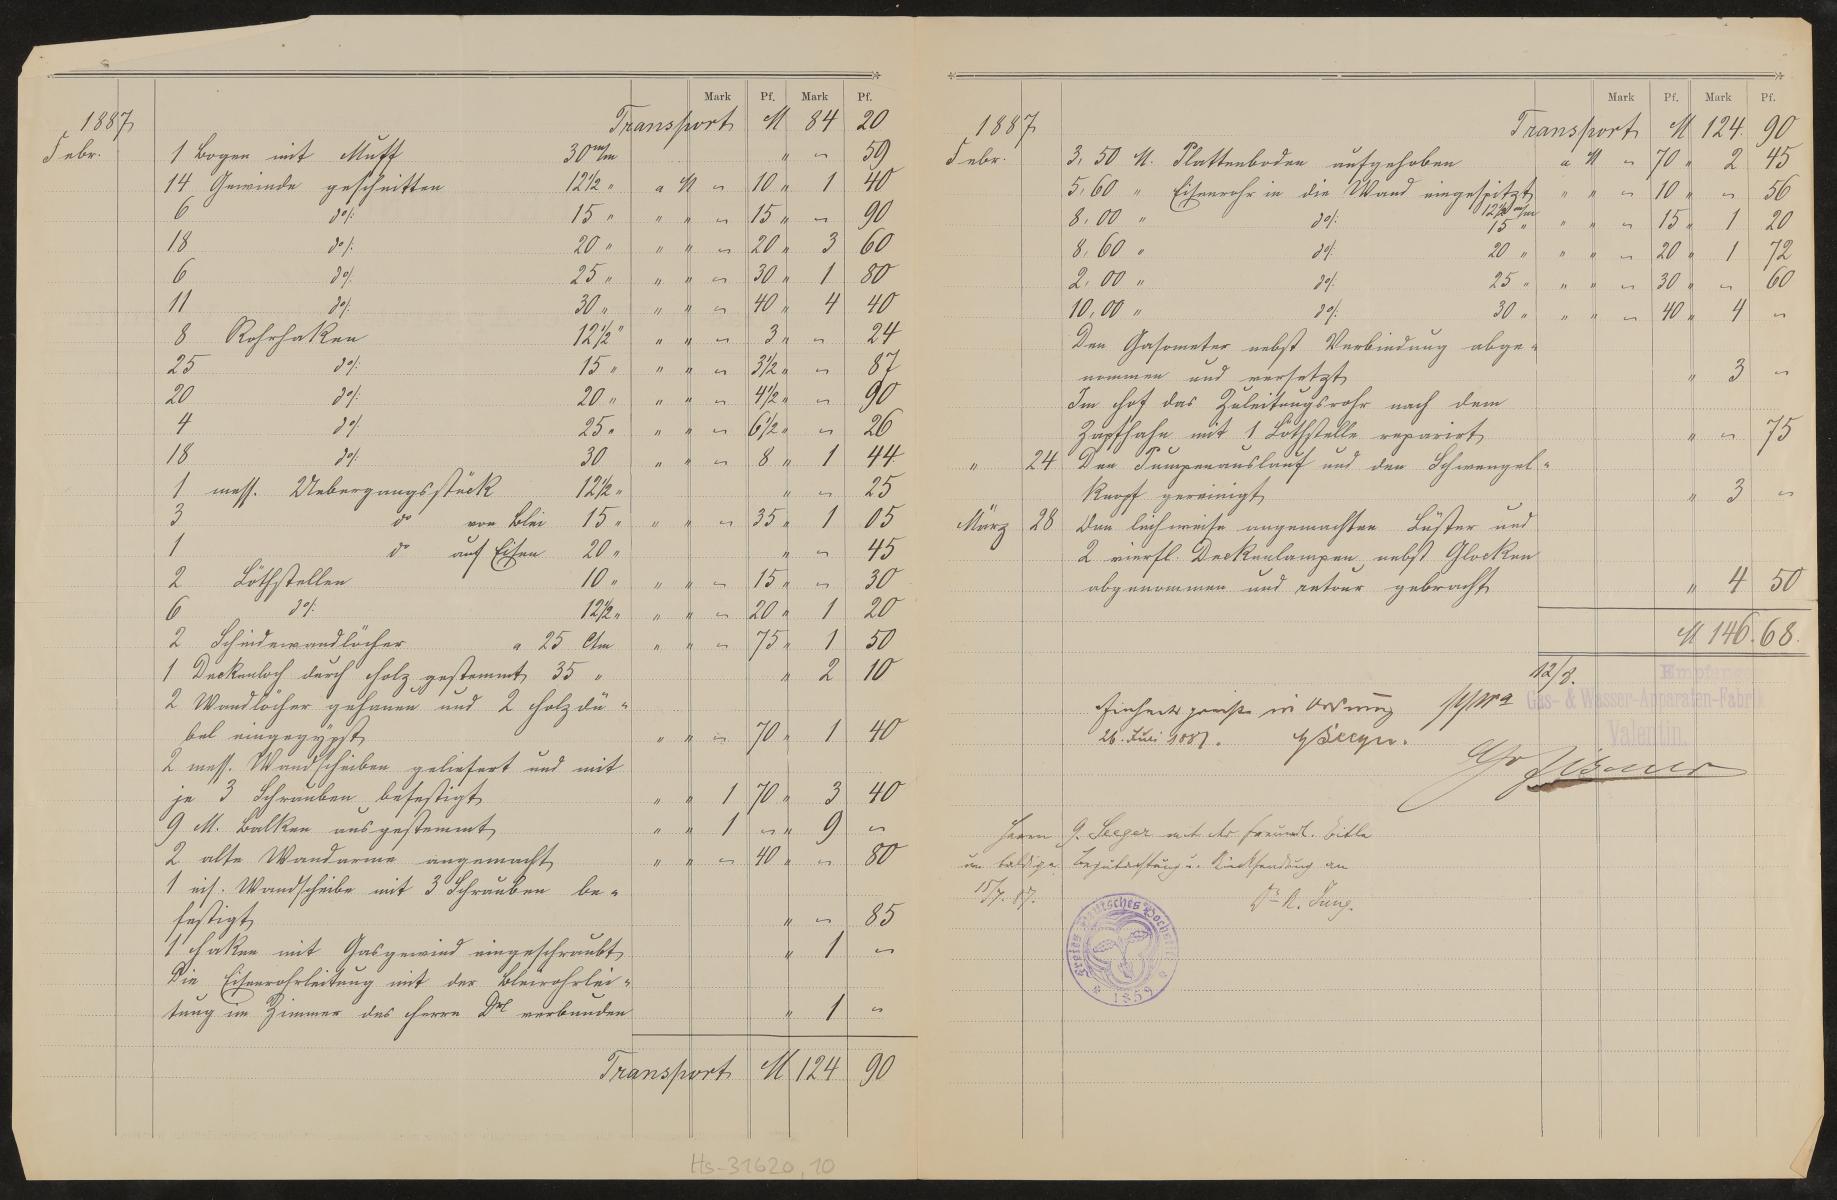 Mark Pf. Mark Pf.
1887 Transport M 84 20
Febr. 1 Bogen mit Muff 30 m/m " — 59
14 Gewinde geschnitten 12½ " a M — 10 " 1 40
6 do/. 15 " " " — 15 " — 90
18 do/. 20 " " " — 20 " 3 60
6 do/. 25 " " " — 30 " 1 80
11 do/. 30 " " " — 40 " 4 40
8 Rohrhaken 12½ " " " — 3 " — 24
25 do/. 15 " " " — 3½ " — 87
20 do/. 20 " " " — 4½ " — 90
4 do/. 25 " " " — 6½ " — 26
18 do/. 30 " " — 8 " 1 44
1 mess. Uebergangsstück 12½ " " — 25
3 do von Blei 15 " " " — 35 " 1 05
1 do auf Eisen 20 " " — 45
2 Löthstellen 10 " " " — 15 " — 30
6 do/. 12½ " " " — 20 " 1 20
2 Scheidewandlöcher a 25 Ctm " " — 75 " 1 50
1 Deckenloch durch Holz gestemmt 35 " " 2 10
2 Wandlöcher gehauen und 2 Holzdü-
bel eingegypst " " — 70 " 1 40
2 mess. Wandscheiben geliefert und mit
je 3 Schrauben befestigt " " 1 70 " 3 40
9 M. Balken ausgestemmt " " 1 — " 9 —
2 alte Wandarme angemacht " " — 40 " — 80
1 eis. Wandscheibe mit 3 Schrauben be-
festigt " — 85
1 Haken mit Gasgewind eingeschraubt " 1 —
Die Eisenrohrleitung mit der Bleirohrlei-
tung im Zimmer des Herrn Dr verbunden " 1 —
Transport M 124 90
Hs-31620,10
Mark Pf. Mark Pf.
1887 Transport M 124. 90
Febr. 3,50 M. Plattenboden aufgehoben a M — 70 " 2 45
5,60 " Eisenrohr in die Wand eingespitzt 12½ m/m " " — 10 " — 56
8,00 " do/. 15 " " " — 15 " 1 20
8,60 " do/. 20 " " " — 20 " 1 72
2,00 " do/. 25 " " " — 30 " — 60
10,00 " do/. 30 " " " — 40 " 4 —
Den Gasometer nebst Verbindung abge-
nommen und versetzt " 3 —
Im Hof das Zuleitungsrohr nach dem
Zapfhahn mit 1 Löthstelle reparirt " — 75
" 24 Den Pumpenauslauf und den Schwengel-
knopf gereinigt " 3 —
März 28 Den leihweise angemachten Lüster und
2 vierfl. Deckenlampen nebst Glocken
abgenommen und retour gebracht " 4 50
M 146.68.
12/8.
Empfangen
Gas- & Wasser-Apparaten-Fabrik
Valentin.
Einheitspreise in Ordnung
26. Juli 1887. G Seeger.
Herrn G. Seeger m. d. freundl. Bitte
um baldige Begutachtung u. Rücksendung an
15/7. 87. Dr A. Jung.
Freies Deutsches Hochstift
* 1859 *